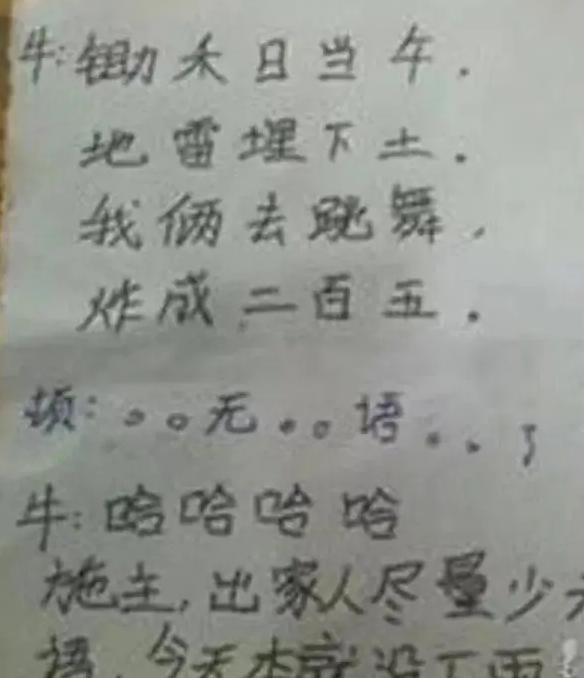 牛:锄禾日当午.
地雷埋下土.
我俩去跳舞,
炸成二百五.
顿:。。无。。语。。了
牛:哈哈哈哈
施主,出家人尽量少
语,今天本就没下雨